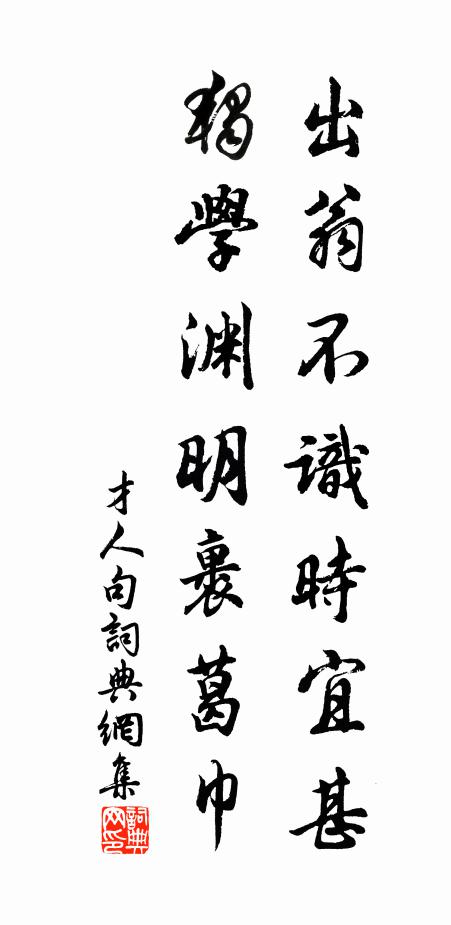 出翁不識時宜甚
獨學渊明裹葛巾
才人句詞典網集
詞典
网印